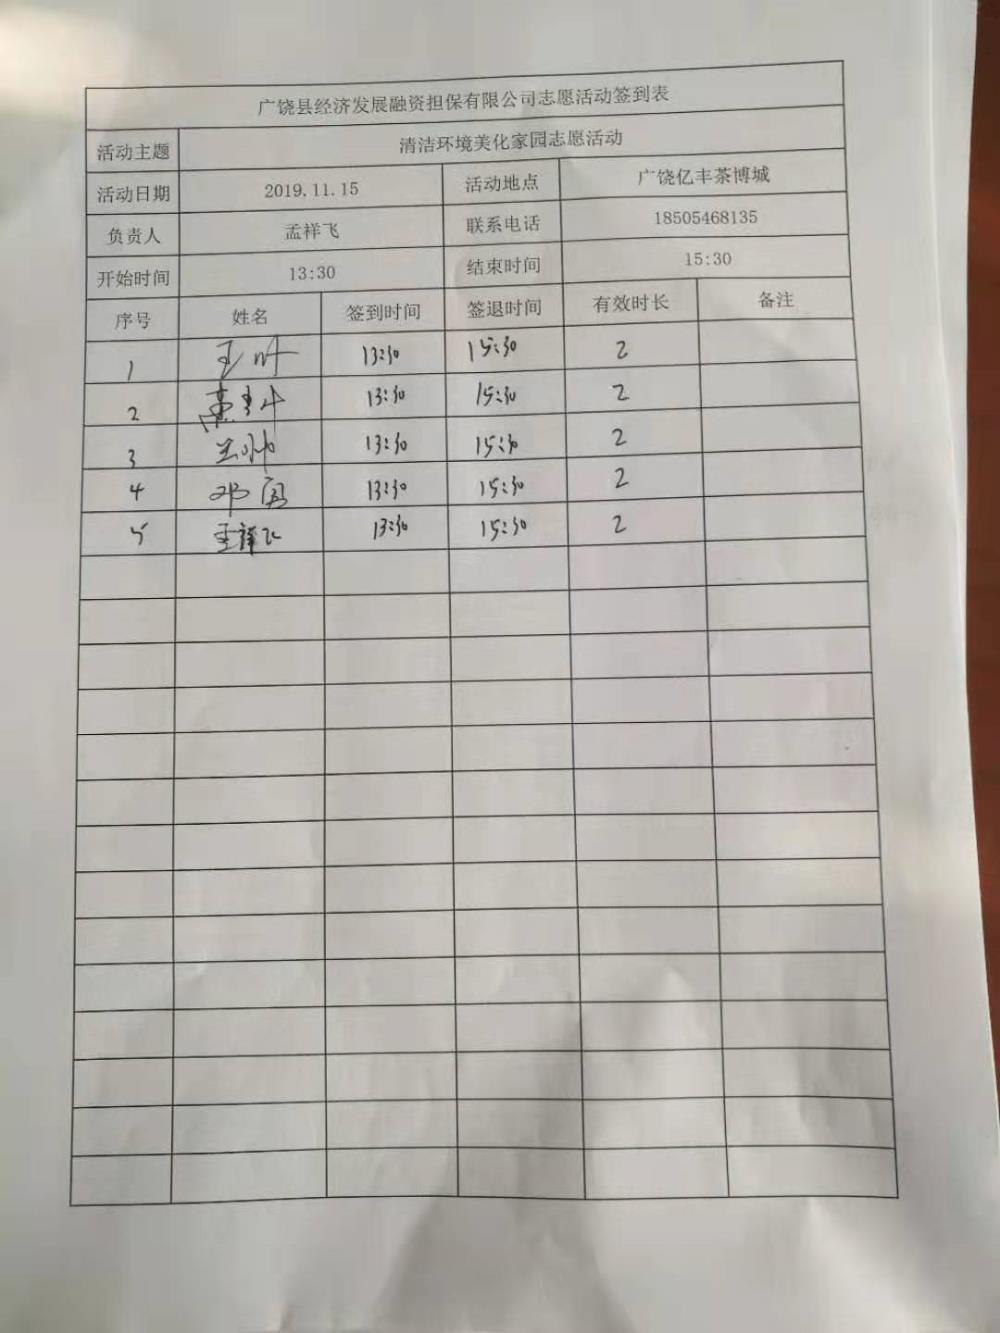 广饶县经济发展融资担保有限公司志愿活动签到表
活动主题 清洁环境美化家园志愿活动
活动日期 2019.11.15 活动地点 广饶亿丰茶博城
负责人 孟祥飞 联系电话 18505468135
开始时间 13:30 结束时间 15:30
序号 姓名 签到时间 签退时间 有效时长 备注
1 13:30 15:30 2
2 13:30 15:30 2
3 王帅 13:30 15:30 2
4 邓国 13:30 15:30 2
5 孟祥飞 13:30 15:30 2